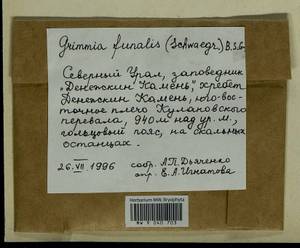 Grimmia funalis (Schwaegr.) B.S.G.
Северный Урал, заповедник
"Денежкин Камень", хребет
Денежкин Камень, юго-вос-
точное плечо Кулаковского
перевала, 940 м над ур. м.,
гольцовый пояс, на скальных
останцах.
26.VII 1996 собр. А.П. Дьяченко
опр. Е.А. Игнатова
Herbarium MW, Bryophyta
MW 9 040 703